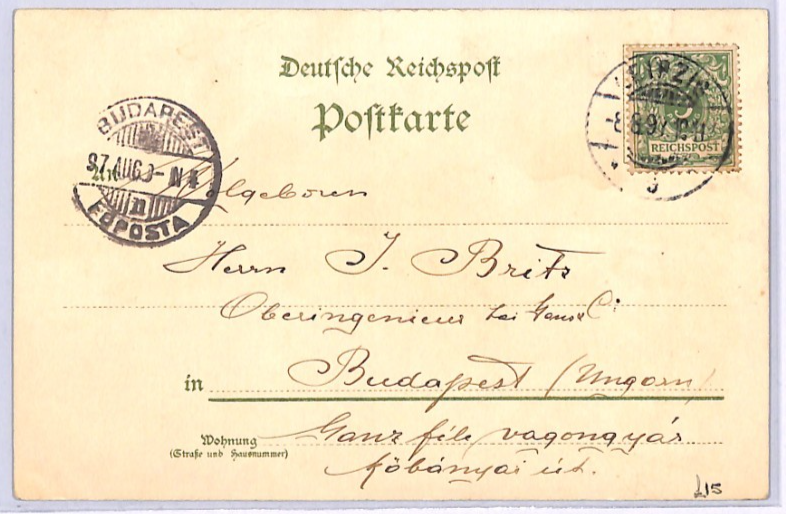 Deutsche Reichspost
Postkarte
BUDAPEST
97 AUG 9- N 4
FŐPOSTA
LEIPZIG
8.8.97
REICHSPOST
5
An
Wohlgeboren
Herrn J. Brits
Oberingenieur bei Ganz & C:
in Budapest (Ungarn)
Wohnung
(Straße und Hausnummer)
Ganz féle vagongyár
Kőbányai út.
£15